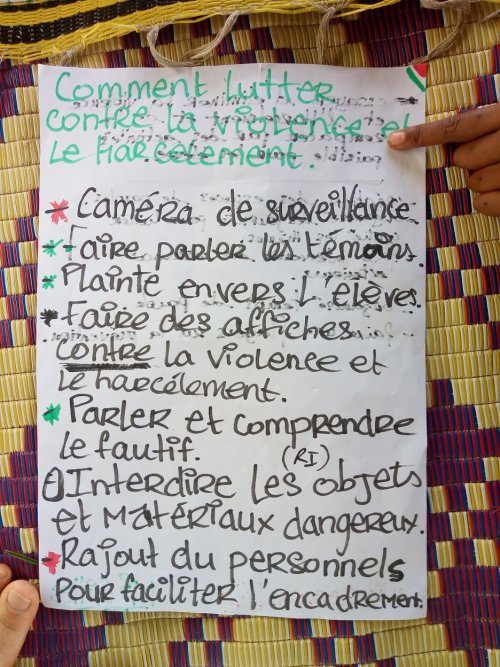 Comment lutter
contre la violence et
le harcèlement.
* Caméra de surveillance.
* Faire parler les témoins.
* Plainte envers l'elèves.
* Faire des affiches
contre la violence et
le harcélement.
* Parler et comprendre
le fautif. (RI)
Interdire les objets
et matériaux dangereux.
* Rajout du personnels
pour faciliter l'encadrement.